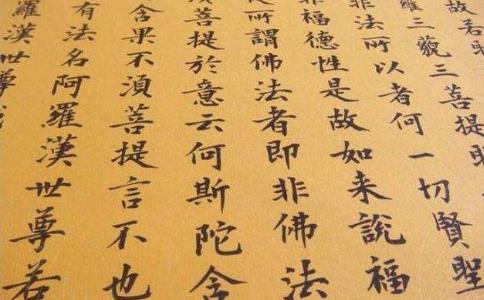 故若
三藐三菩提
非法所以者何一切賢聖
非福德性是故如来說福
所謂佛法者即非佛法
菩提於意云何斯陀含
含果不須菩提言不也
有法名阿羅漢世尊若
羅漢世尊